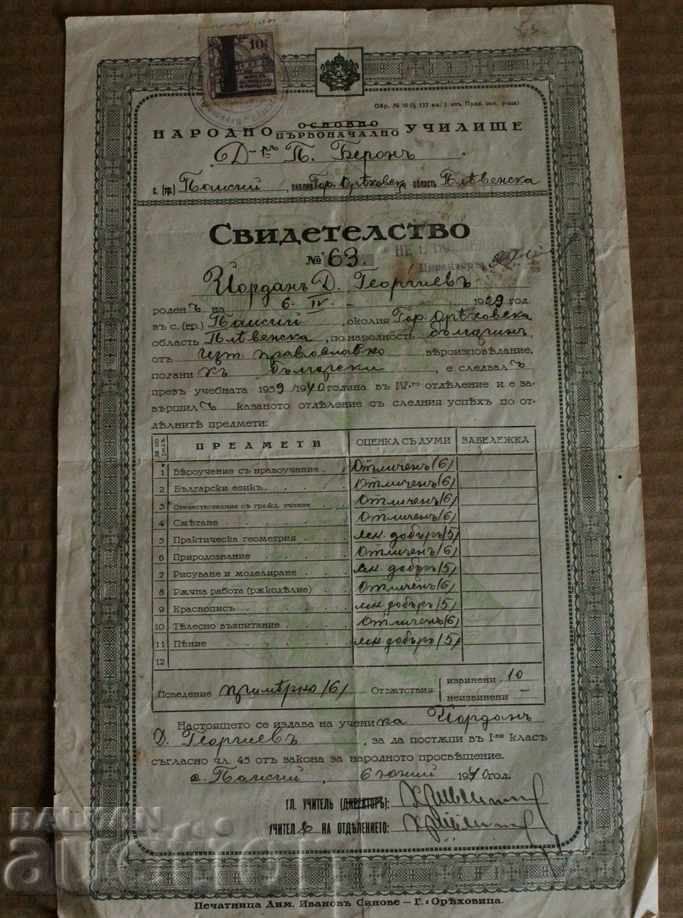 10
Обр. № 10 (§ 137 ал. 2 отъ Прав. осн. у-ща)
НАРОДНО ОСНОВНО ПЪРВОНАЧАЛНО УЧИЛИЩЕ
Д-ръ П. Беронъ
с. (гр.) Паисий, околия Гор. Орѣховска область Плѣвенска
СВИДЕТЕЛСТВО
№ 63.
Йорданъ Д. Георгиевъ
роденъ на 6. IV 1929 год.
въ с. (гр.) Паисий, околия Гор. Орѣховска
область Плѣвенска, по народность българинъ,
отъ изт. православно вѣроизповѣдание,
български, е следвалъ
презъ учебната 1939/1940 година въ IV-то отдѣление и е за-
вършилъ казаното отдѣление съ следния успѣхъ по от-
дѣлнитѣ предмети:
ПРЕДМЕТИ ОЦЕНКА СЪ ДУМИ ЗАБЕЛЕЖКА
1 Вѣроучение съ нравоучение Отличенъ (6)
2 Български езикъ Отличенъ (6)
3 Отечествознание съ гражд. учение Отличенъ (6)
4 Смѣтане Отличенъ (6)
5 Практическа геометрия мн. добъръ (5)
6 Природознание Отличенъ (6)
7 Рисуване и моделиране мн. добъръ (5)
8 Рѫчна работа (рѫкодѣлие) Отличенъ (6)
9 Краснописъ мн. добъръ (5)
10 Тѣлесно възпитание Отличенъ (6)
11 Пѣние мн. добъръ (5)
12
Поведение примѣрно (6) Отсѫтствия извинени 10
неизвинени —
Настоящето се издава на ученика Йорданъ
Д. Георгиевъ, за да постѫпи въ I-ви класъ
съгласно чл. 45 отъ закона за народното просвѣщение.
с. Паисий, 6 юний 1940 год.
ГЛ. УЧИТЕЛЬ (ДИРЕКТОРЪ):
УЧИТЕЛЪ НА ОТДѢЛЕНИЕТО:
Печатница Дим. Ивановъ Синове — Г.-Орѣховица.
BALKAN
АУКЦИОН